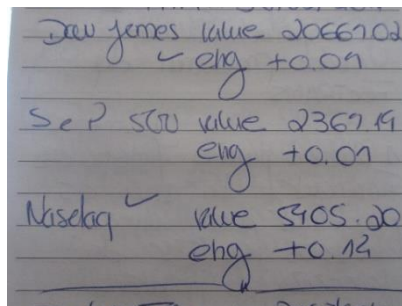 Dow Jomes value 20669.02
eng +0.09
S e P 500 value 2369.19
eng +0.01
Nasdaq value 5405.20
eng +0.12